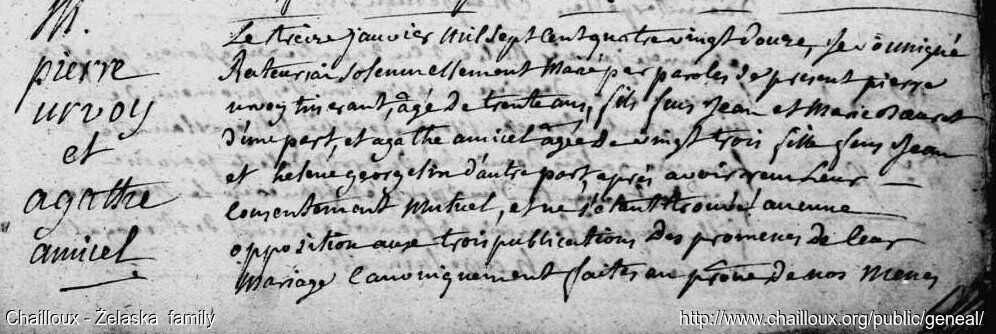 M.
pierre
urvoy
et
agathe
amicel
Le treize janvier Mil Sept Cent quatre vingt douze, je
Recteur ai Solemnellement Marié par paroles de present pierre
urvoy tisserant, agé de trente ans, fils feus Jean et Marie
d'une part, et agathe amicel agée de vingt trois fille feus Jean
et helene georgelin d'autre part, après avoir reçu leur
Consentement Mutuel, et ne s'étant trouvé aucune
opposition aux trois publications des promesses de leur
Mariage Canoniquement faites au prône de nos Messes
Chailloux - Żelaska family
http://www.chailloux.org/public/geneal/